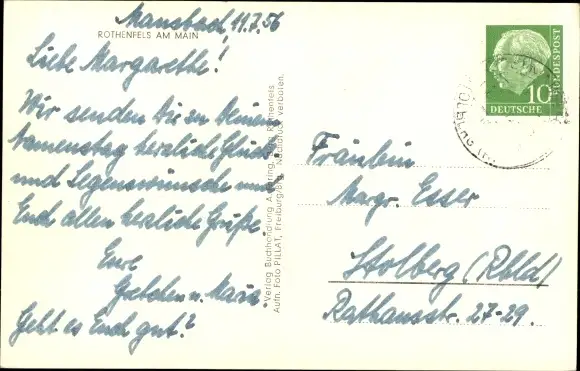 Mansbach, 11.7.56
ROTHENFELS AM MAIN
Liebe Margarethe!
Wir senden Dir zu Deinem
Namenstag herzliche Glück-
und Segenswünsche und
Euch allen herzliche Grüße.
Eure
Gretchen u. Maria.
Geht es Euch gut?
Verlag Buchhandlung Rothenfels
Aufn. Foto PILLAT, Freiburg/Brg. Nachdruck verboten.
10
DEUTSCHE
BUNDESPOST
Fräulein
Margr. Esser
Stolberg (Rhld)
Rathausstr. 27-29.